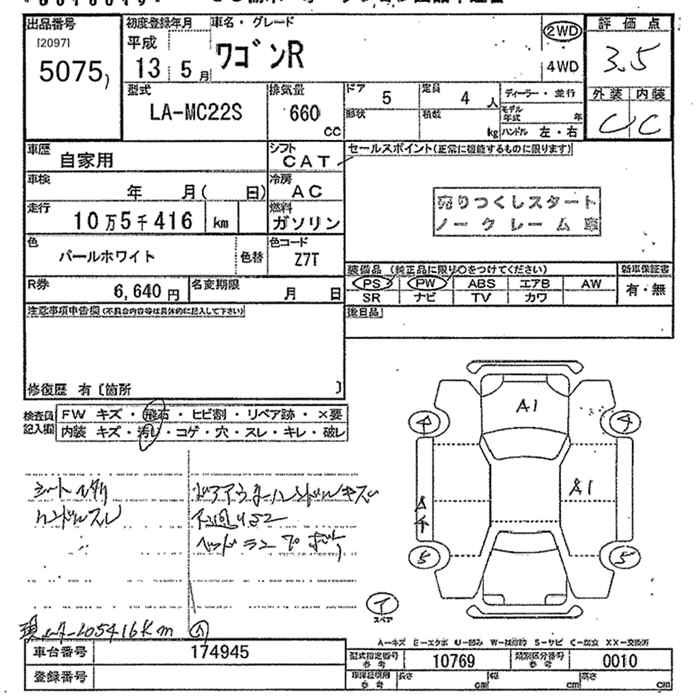 出品番号
[2097]
5075
初度登録年月
平成
13 5月
車名・グレード
ワゴンR
2WD
4WD
評価点
3.5
外装 内装
C C
型式
LA-MC22S
排気量
660
CC
ドア
5
定員
4人
形状
積載
kg
ディーラー・並行
モデル年式 年
ハンドル 左・右
車歴
自家用
シフト
CAT
セールスポイント(正常に機能するものに限ります)
車検
年 月( 日)
冷房
AC
売りつくしスタート
ノークレーム車
走行
10万5千416 km
燃料
ガソリン
色
パールホワイト
色替
色コード
Z7T
装備品 (純正品に限り○をつけてください)
新車保証書
PS PW ABS エアB AW
SR ナビ TV カワ
有・無
R券
6,640円
名変期限
月 日
後日品
注意事項申告欄(不具合内容等は具体的に記入して下さい)
修復歴 有〔箇所 〕
検査員記入欄
FW キズ・飛石・ヒビ割・リペア跡・×要
内装 キズ・汚レ・コゲ・穴・スレ・キレ・破レ
ハンドルスレ
A1
A1
4
4
5
5
スペア
A-105416Km
A-キズ E-エクボ U-凹み W-補修跡 S-サビ C-腐食 XX-交換済
車台番号
174945
登録番号
型式指定番号
参考
10769
類別区分番号
参考
0010
長さ cm
幅 cm
高さ cm